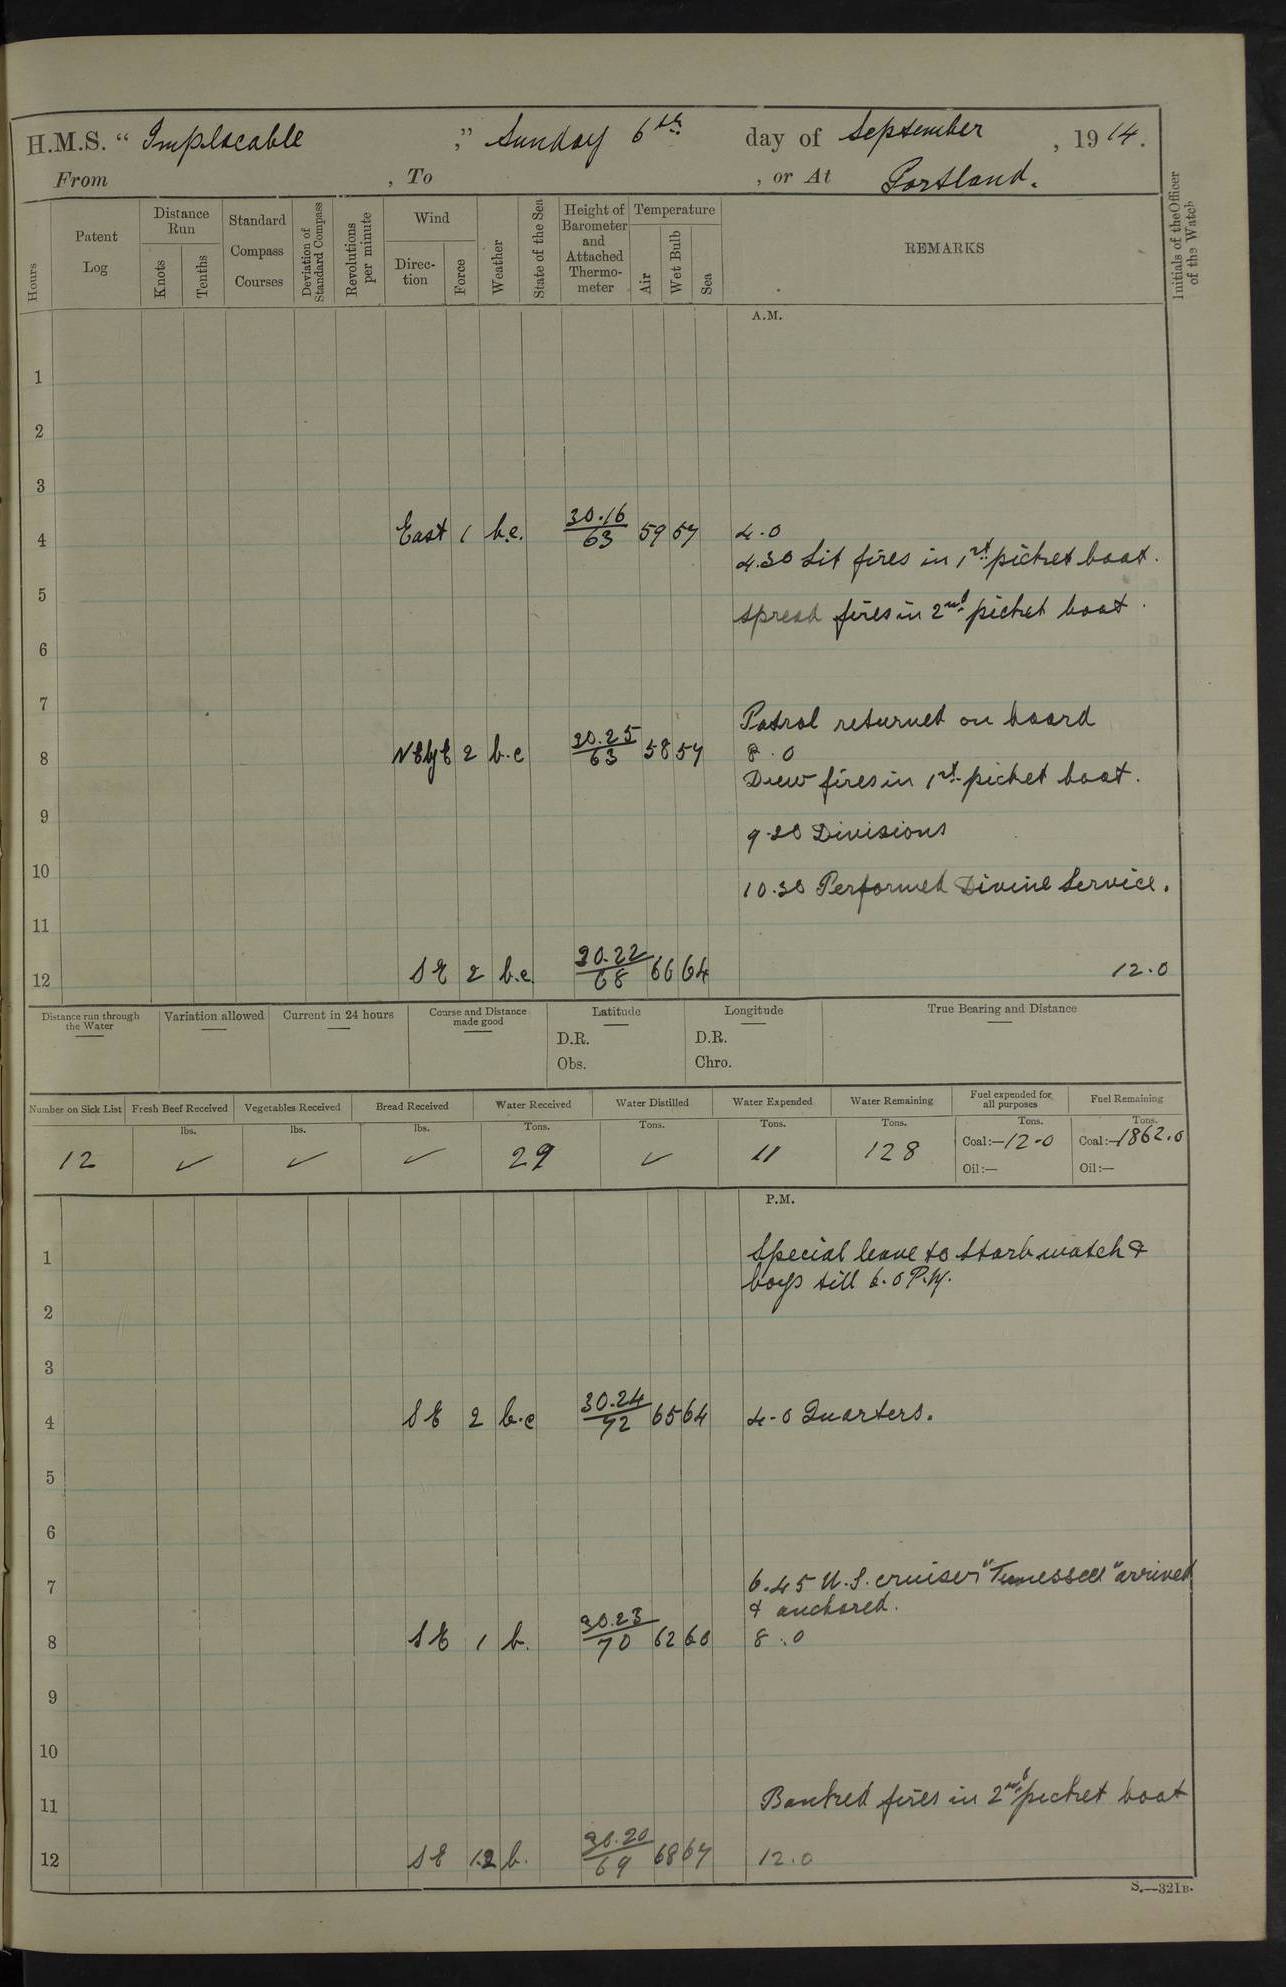 H.M.S. " Implacable ," Sunday 6th day of September , 1914.
From , To , or At Portland.
Hours
Patent Log
Distance Run
Knots
Tenths
Standard Compass Courses
Deviation of Standard Compass
Revolutions per minute
Wind
Direc-tion
Force
Weather
State of the Sea
Height of Barometer and Attached Thermo-meter
Temperature
Air
Wet Bulb
Sea
REMARKS
Initials of the Officer of the Watch
A.M.
1
2
3
4 East 1 b.c. 30.16/63 59 57 4.0
4.30 Lit fires in 1st picket boat.
5
spread fires in 2nd picket boat.
6
7
Patrol returned on board
8 NEbyE 2 b.c 30.25/63 58 57 8.0
Drew fires in 1st picket boat.
9
9.20 Divisions
10
10.30 Performed Divine Service.
11
12 SE 2 b.c. 30.22/68 66 64 12.0
Distance run through the Water
Variation allowed
Current in 24 hours
Course and Distance made good
Latitude
D.R.
Obs.
Longitude
D.R.
Chro.
True Bearing and Distance
Number on Sick List Fresh Beef Received Vegetables Received Bread Received Water Received Water Distilled Water Expended Water Remaining Fuel expended for all purposes Fuel Remaining
lbs. lbs. lbs. Tons. Tons. Tons. Tons. Tons. Tons.
12 ✓ ✓ ✓ 29 ✓ 11 128 Coal:—12.0 Coal:—1862.0
Oil:— Oil:—
P.M.
1 Special leave to Starb watch &
boys till 6.0 P.M.
2
3
4 SE 2 b.c 30.24/72 65 64 4.0 Quarters.
5
6
7 6.45 U.S. cruiser "Tennessee" arrived
& anchored.
8 SE 1 b. 30.23/70 62 60 8.0
9
10
11 Banked fires in 2nd picket boat
12 SE 1.2 b. 30.20/69 68 67 12.0
S.—321B.